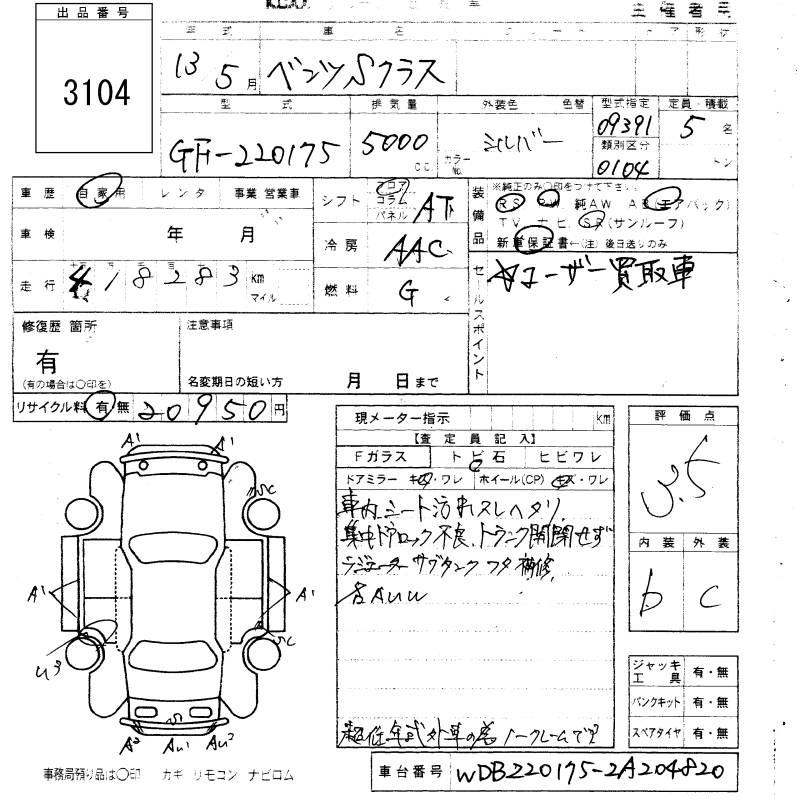 出品番号
3104
主催者号
13 5月 ベンツSクラス
型式 排気量 外装色 色替 型式指定 定員・積載
GF-220175 5000 cc シルバー カラーNo. 09391 5名
類別区分
0104 トン
車歴 自家用 レンタ 事業 営業車
シフト フロア コラム パネル AT
装備品
※純正のみ○印をつけて下さい。
PS PW 純AW AB(エアバック)
TV ナビ SR(サンルーフ)
新車保証書←(注)後日送りのみ
車検 年 月
冷房 AAC
走行 418283 km マイル
燃料 G
セールスポイント
☆ユーザー買取車
修復歴 箇所
有
(有の場合は○印を)
注意事項
名変期日の短い方 月 日まで
リサイクル料 有 無 20950円
現メーター指示 km
【査定員記入】
Fガラス トビ石 ヒビワレ
ドアミラー キズ・ワレ ホイール(CP) キズ・ワレ
車内シート汚れスレヘタリ
集中ドアロック不良、トランク開閉せず
ラジエーターサブタンクフタ補修
各AUW
超低年式外車の為ノークレームです
評価点
3.5
内装 外装
b C
ジャッキ工具 有・無
パンクキット 有・無
スペアタイヤ 有・無
A1 A1
SC
A1 A1
SC
U3
A2 AU1 AU2
事務局預り品は○印 カギ リモコン ナビロム
車台番号 WDB220175-2A204820